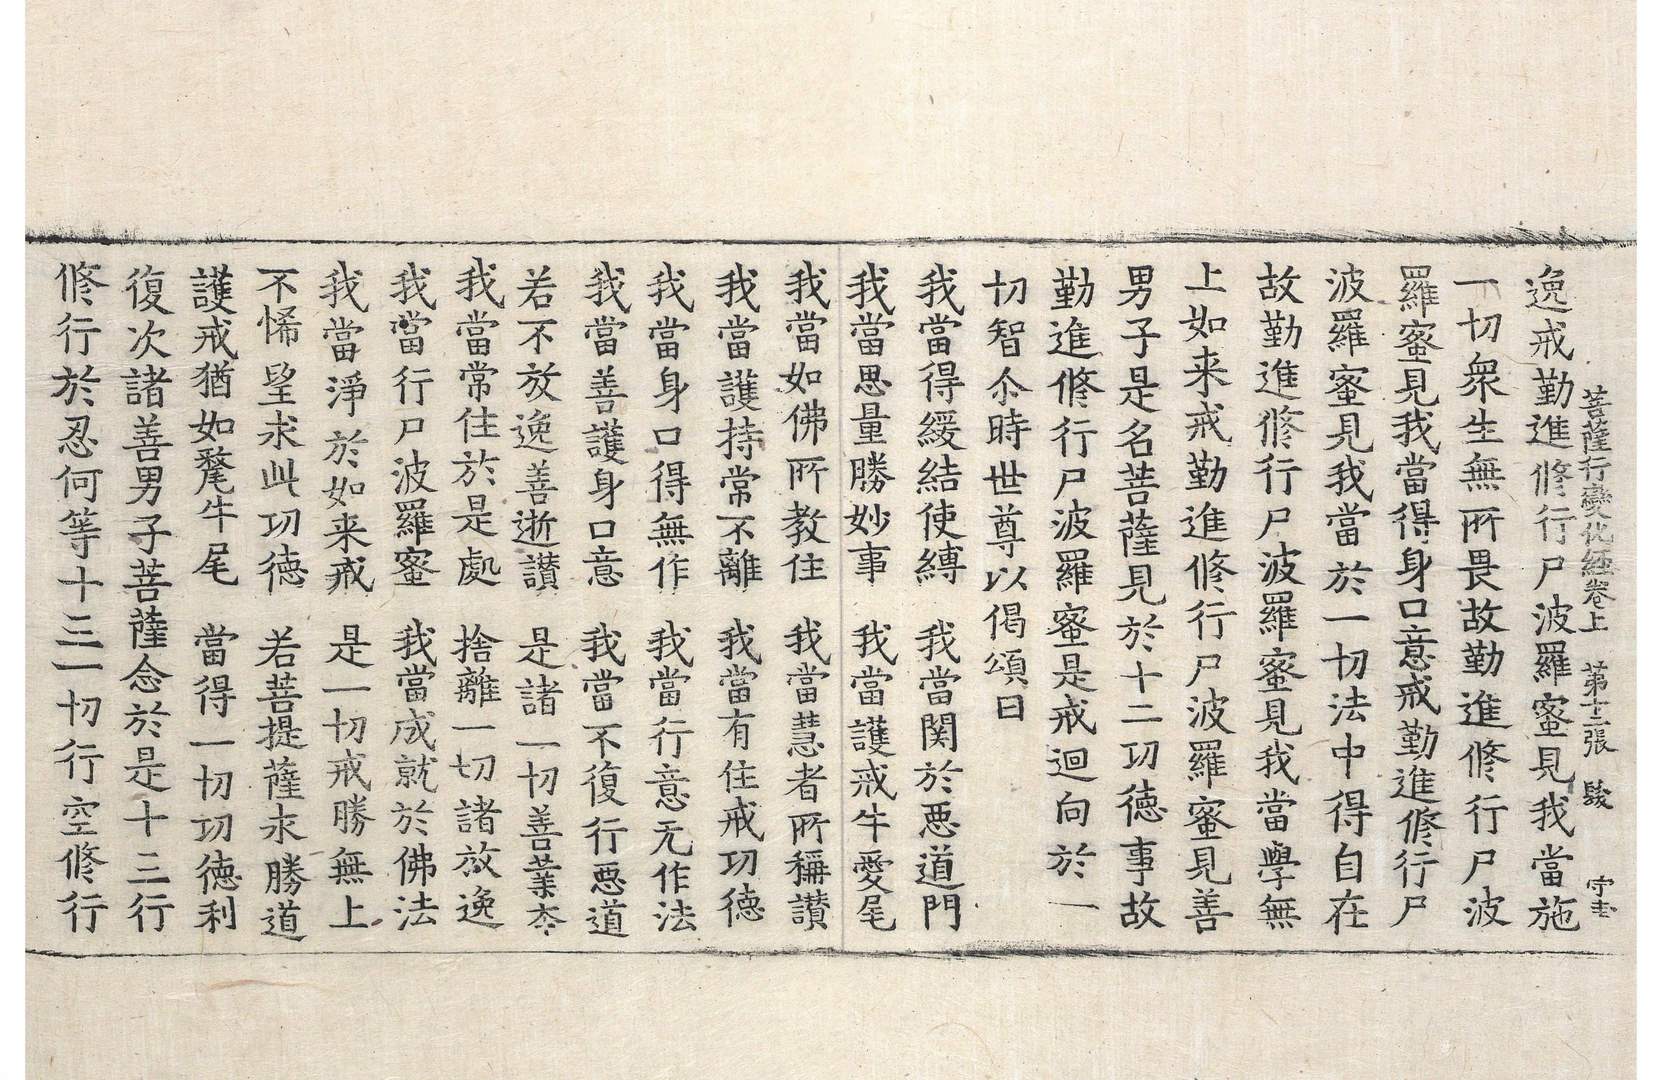 菩薩行變化經卷上 第十二張 駿 守圭
逸戒勤進修行尸波羅蜜見我當施
一切衆生無所畏故勤進修行尸波
羅蜜見我當得身口意戒勤進修行尸
波羅蜜見我當於一切法中得自在
故勤進修行尸波羅蜜見我當學無
上如来戒勤進修行尸波羅蜜見善
男子是名菩薩見於十二功德事故
勤進修行尸波羅蜜是戒迴向於一
切智尒時世尊以偈頌曰
我當得緩結使縛 我當関於悪道門
我當思量勝妙事 我當護戒牛愛尾
我當如佛所教住 我當慧者所稱讃
我當護持常不離 我當有住戒功德
我當身口得無作 我當行意无作法
我當善護身口意 我當不復行悪道
若不放逸善逝讃 是諸一切善業夲
我當常住於是處 捨離一切諸放逸
我當行尸波羅蜜 我當成就於佛法
我當淨於如来戒 是一切戒勝無上
不悕望求此功德 若菩提薩求勝道
護戒猶如氂牛尾 當得一切功德利
復次諸善男子菩薩念於是十三行
修行於忍何等十三一切行空修行